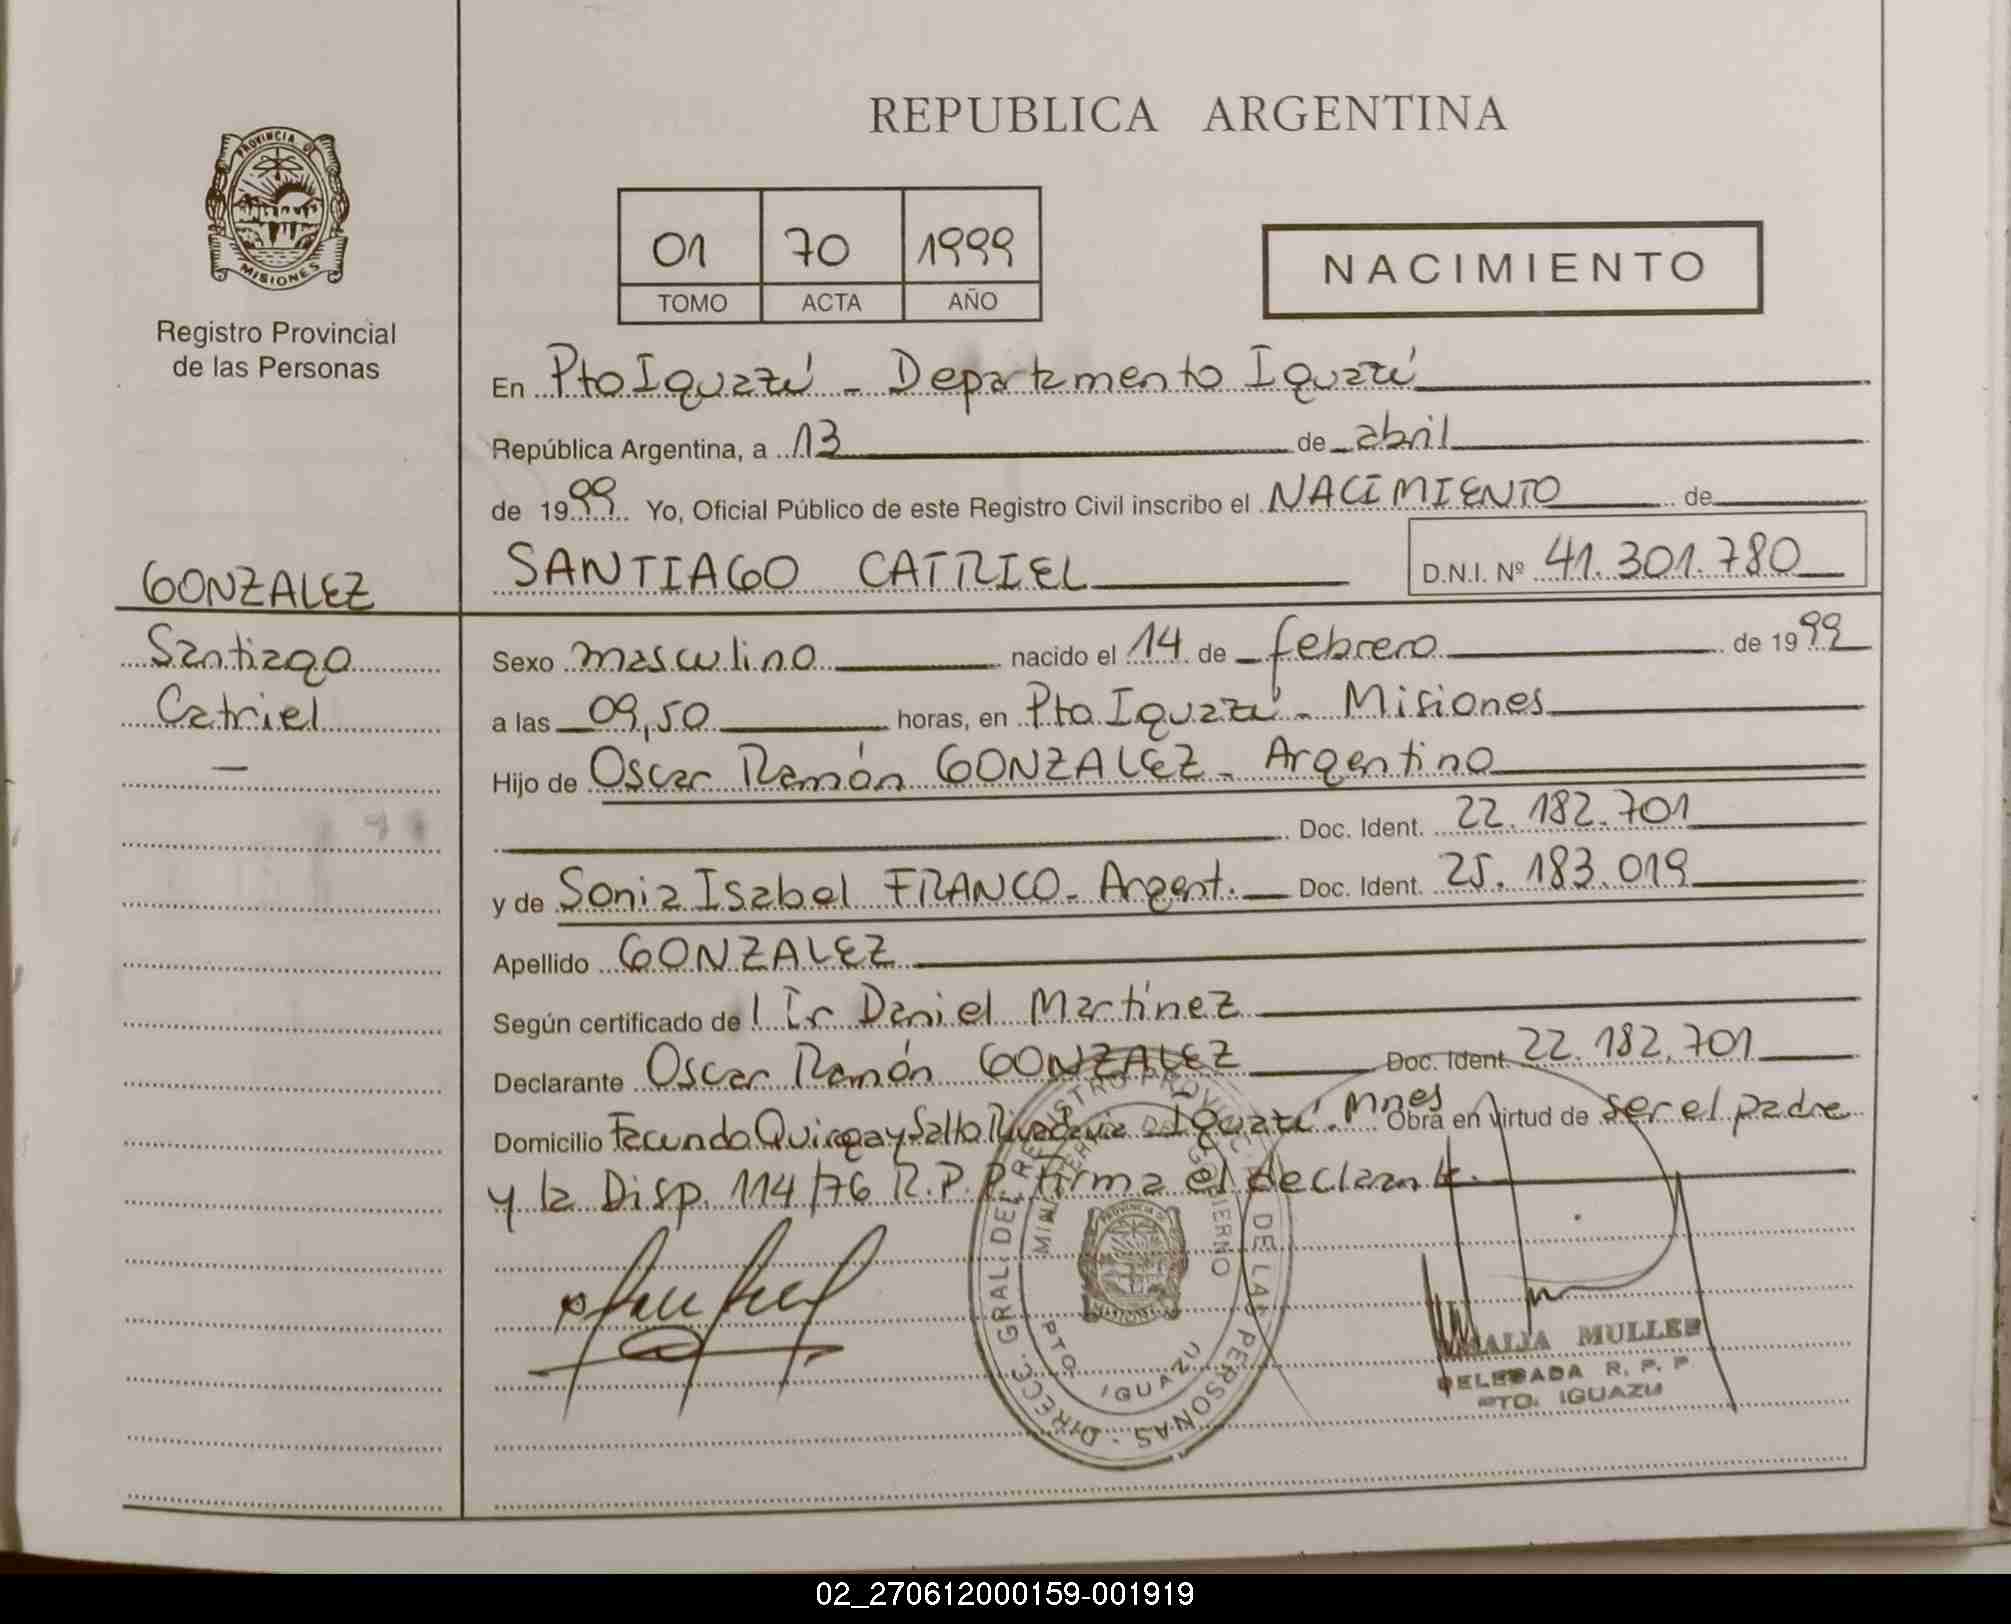 REPUBLICA ARGENTINA
PROVINCIA DE
MISIONES
Registro Provincial
de las Personas
01 70 1999
TOMO ACTA AÑO
NACIMIENTO
En Pto Iguazú - Departamento Iguazú
República Argentina, a 13 de abril
de 1999 Yo, Oficial Público de este Registro Civil inscribo el NACIMIENTO de
GONZALEZ
SANTIAGO CATRIEL D.N.I. Nº 41.301.780
Santiago
Catriel
Sexo masculino nacido el 14 de febrero de 1999
a las 09,50 horas, en Pto Iguazú - Misiones
Hijo de Oscar Ramón GONZALEZ - Argentino
Doc. Ident. 22.182.701
y de Sonia Isabel FRANCO - Argent. Doc. Ident. 25.183.019
Apellido GONZALEZ
Según certificado de Daniel Martínez
Declarante Oscar Ramón GONZALEZ Doc. Ident. 22.182.701
Domicilio Facundo Quiroga y Salto Rivadavia - Iguazú. Mnes Obra en virtud de ser el padre
y la Disp. 114/76 R.P.P. firma el declarante.
DIRECC. GRAL. DEL REGISTRO PROVINC. DE LAS PERSONAS
GOBIERNO
PROVINCIA DE
MISIONES
PTO. IGUAZU
MULLER
DELEGADA R. P. P.
PTO. IGUAZU
02_270612000159-001919